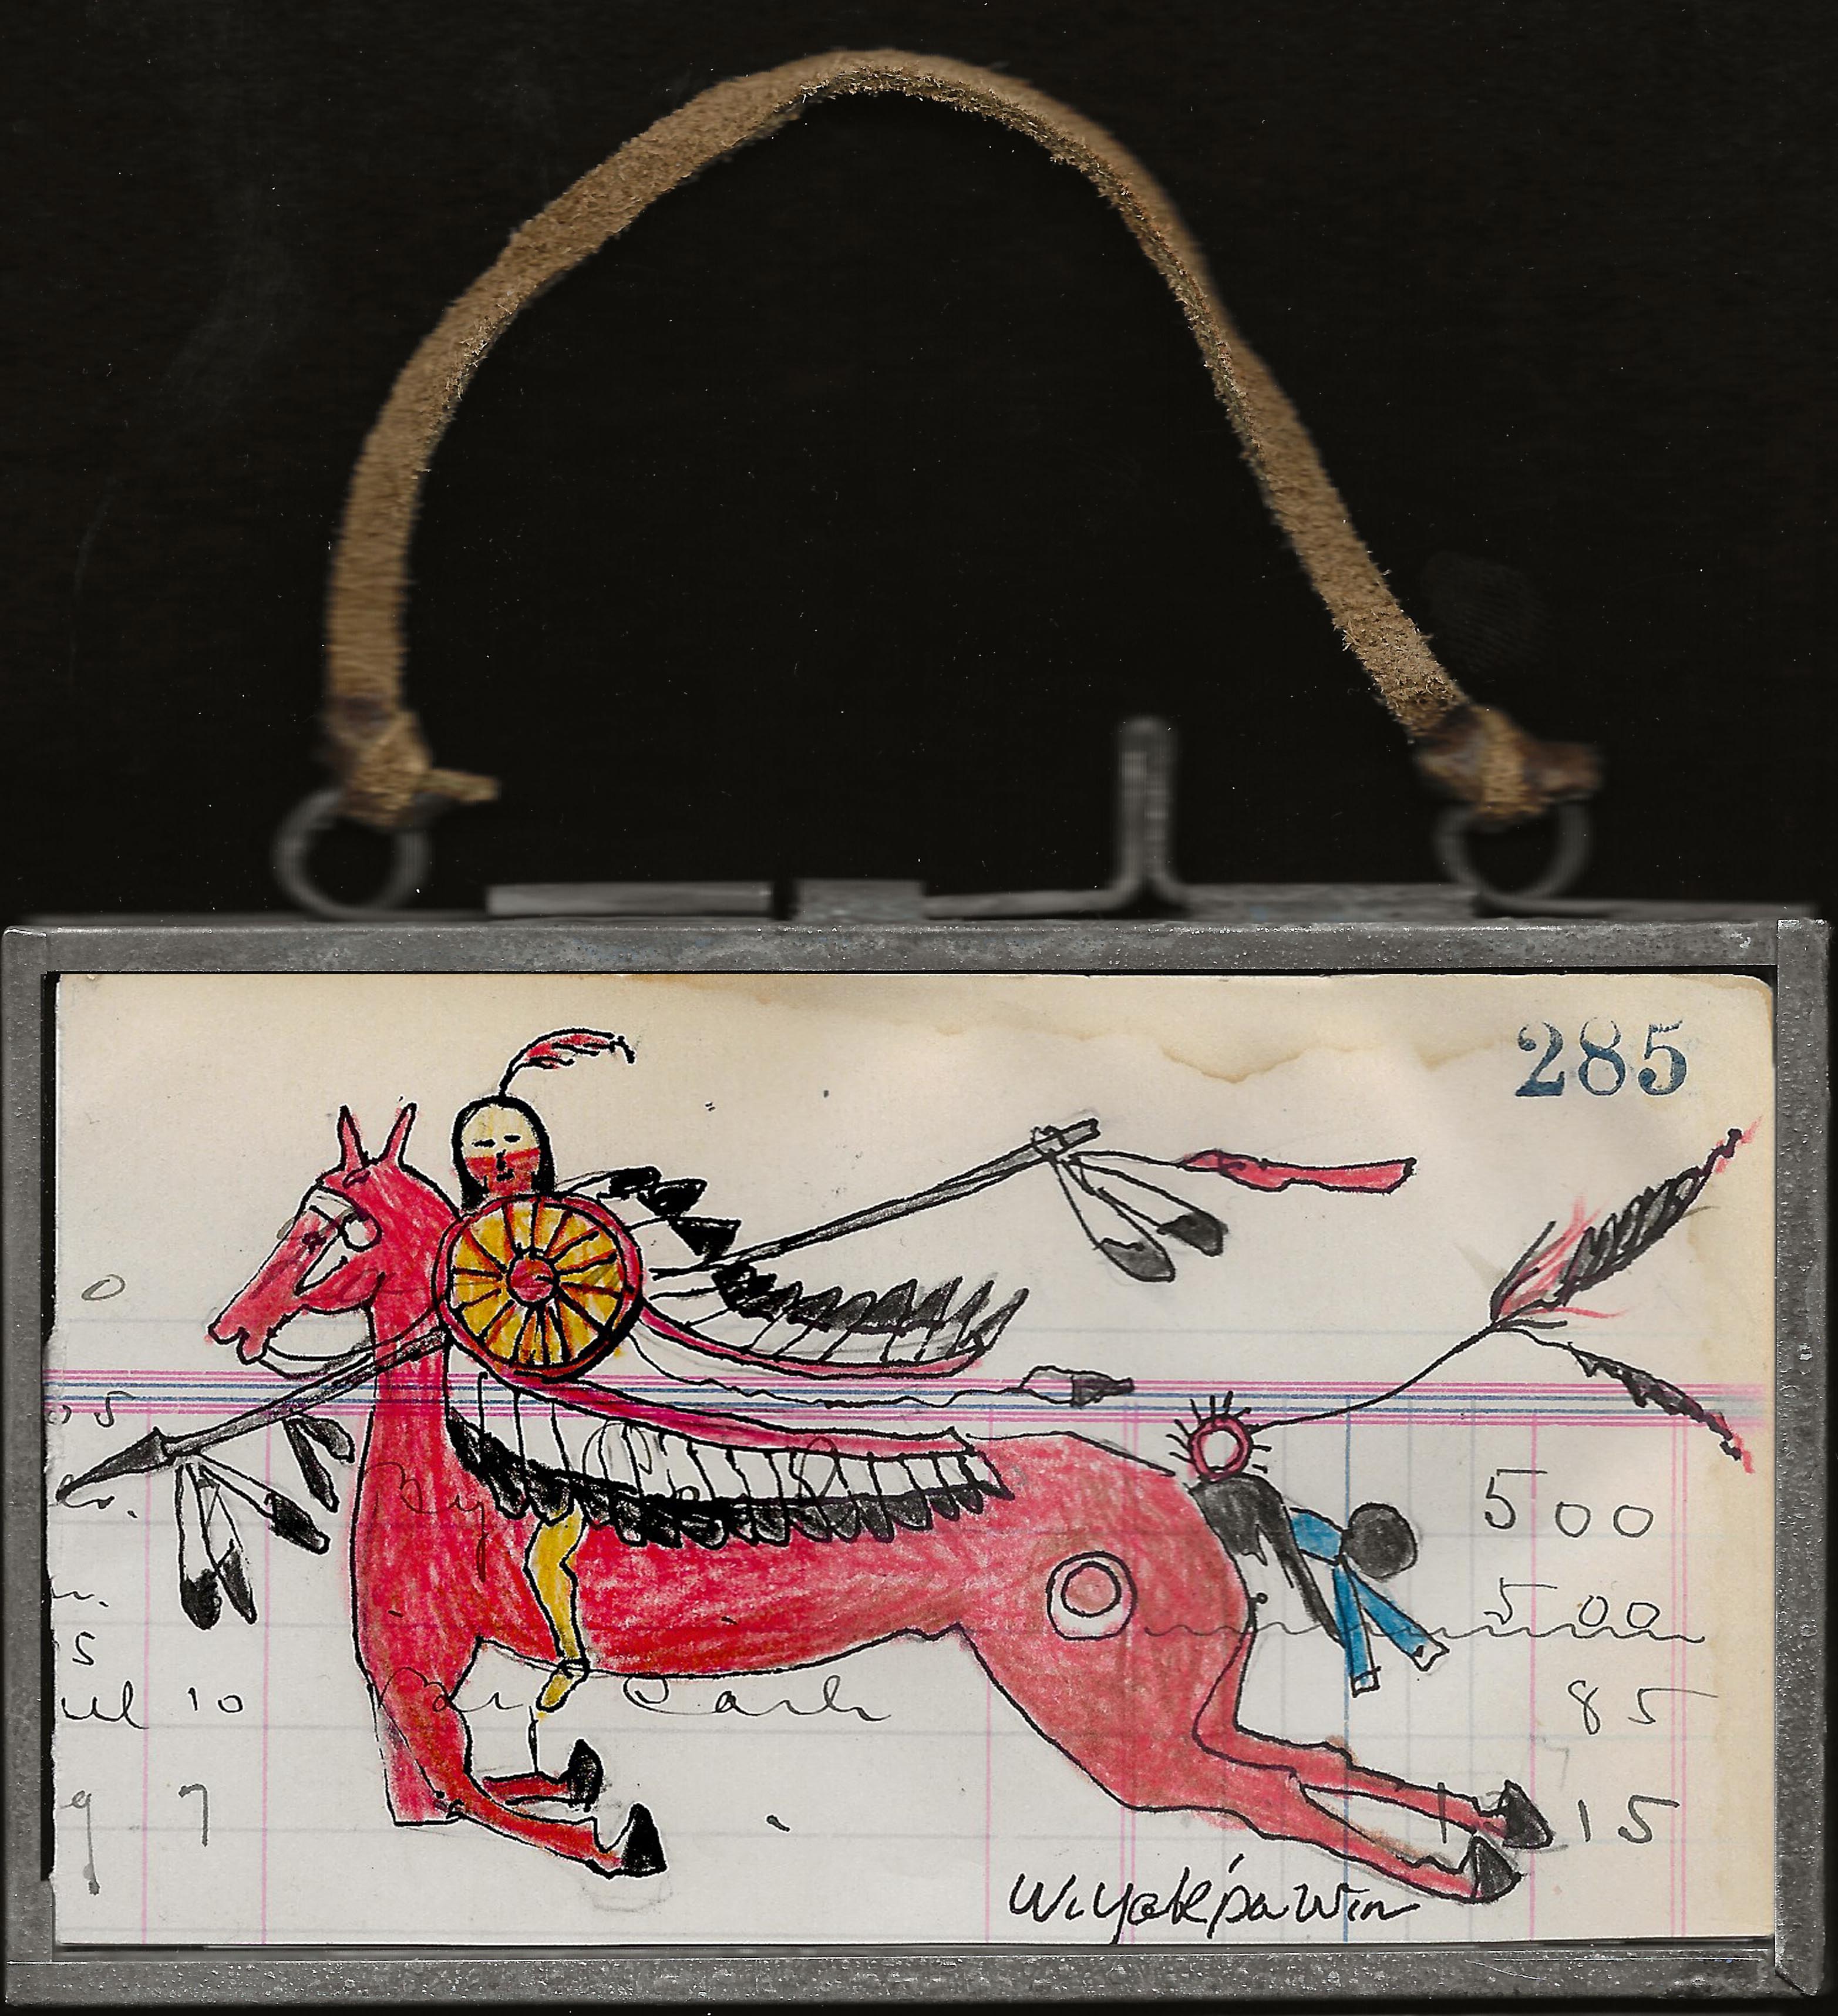 285
0
By
500
500
s
ul 10 By Cash 85
9 7 15
Wiyakpa Win